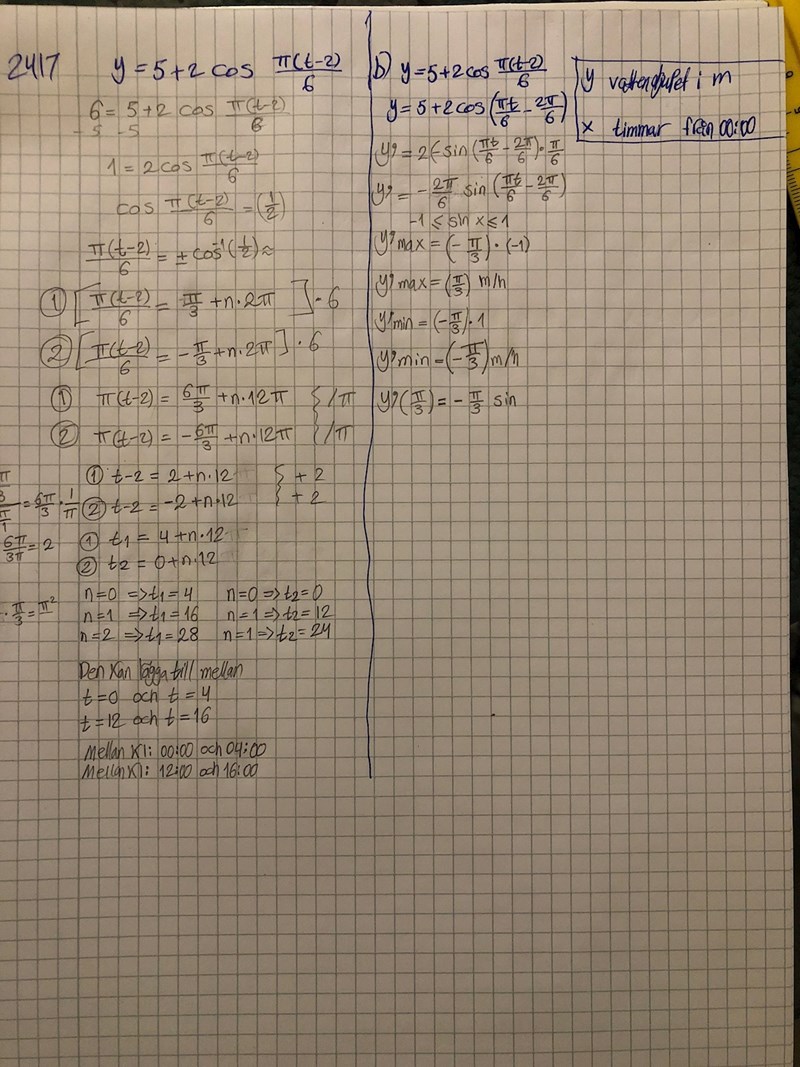 2417 y = 5+2 cos π(t-2)/6
6 = 5+2 cos π(t-2)/6
-5 -5
1 = 2cos π(t-2)/6
cos π(t-2)/6 = (1/2)
π(t-2)/6 = ± cos⁻¹(1/2) ≈
① [π(t-2)/6 = π/3 + n·2π] · 6
② [π(t-2)/6 = -π/3 + n·2π] · 6
① π(t-2) = 6π/3 + n·12π } /π
② π(t-2) = -6π/3 + n·12π } /π
① t-2 = 2+n·12 } + 2
② t-2 = -2+n·12 } + 2
= 6π/3 · 1/π
6π/3π = 2
① t1 = 4+n·12
② t2 = 0+n·12
· π/3 = π²
n=0 => t1 = 4 n=0 => t2=0
n=1 => t1 = 16 n=1 => t2=12
n=2 => t1 = 28 n=1 => t2=24
Den kan lägga till mellan
t=0 och t=4
t=12 och t=16
Mellan Kl: 00:00 och 04:00
Mellan Kl: 12:00 och 16:00
b) y = 5+2 cos π(t-2)/6
y = 5+2 cos(πt/6 - 2π/6)
y' = 2(-sin(πt/6 - 2π/6) · π/6
y' = -2π/6 sin(πt/6 - 2π/6)
-1 ≤ sin x ≤ 1
y'max = (-π/3) · (-1)
y'max = (π/3) m/h
y'min = (-π/3) · 1
y'min = (-π/3) m/h
y'(π/3) = -π/3 sin
y vattendjupet i m
x timmar från 00:00